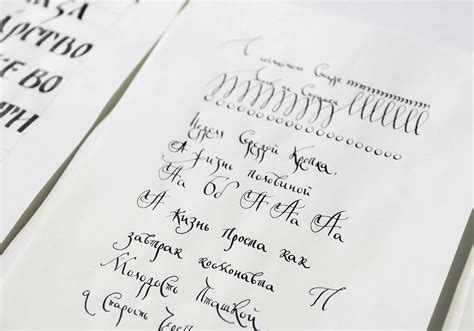 ДАРСТВО
Е ВО
Неделя Середой Крепка,
А жизнь половиной
Аа Бб А Аа Аа
А жизнь проста как
завтрак космонавта П
Молодость Пташкой
а Старость